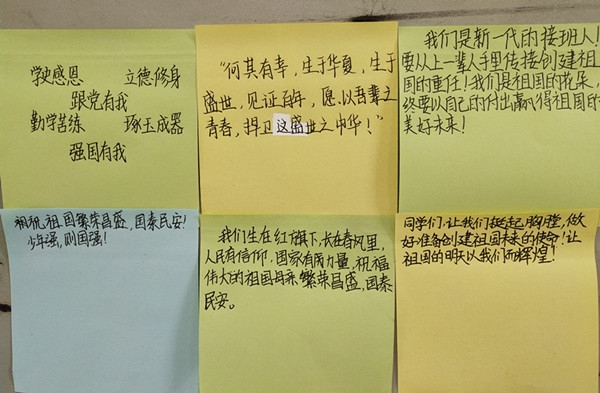 学史感恩 立德修身
跟党有我
勤学苦练 琢玉成器
强国有我
“何其有幸，生于华夏，生于
盛世，见证百年，愿以吾辈之
青春，捍卫这盛世之中华！”
我们是新一代的接班人！
要从上一辈人手里传接创建祖
国的重任！我们是祖国的花朵，
终要以自己的付出赢得祖国的
美好未来！
祝祖国繁荣昌盛，国泰民安！
少年强，则国强！
我们生在红旗下，长在春风里，
人民有信仰，国家有力量，祝福
伟大的祖国母亲繁荣昌盛，国泰
民安。
同学们，让我们挺起胸膛，做
好准备创建祖国未来的使命！让
祖国的明天以我们而辉煌！